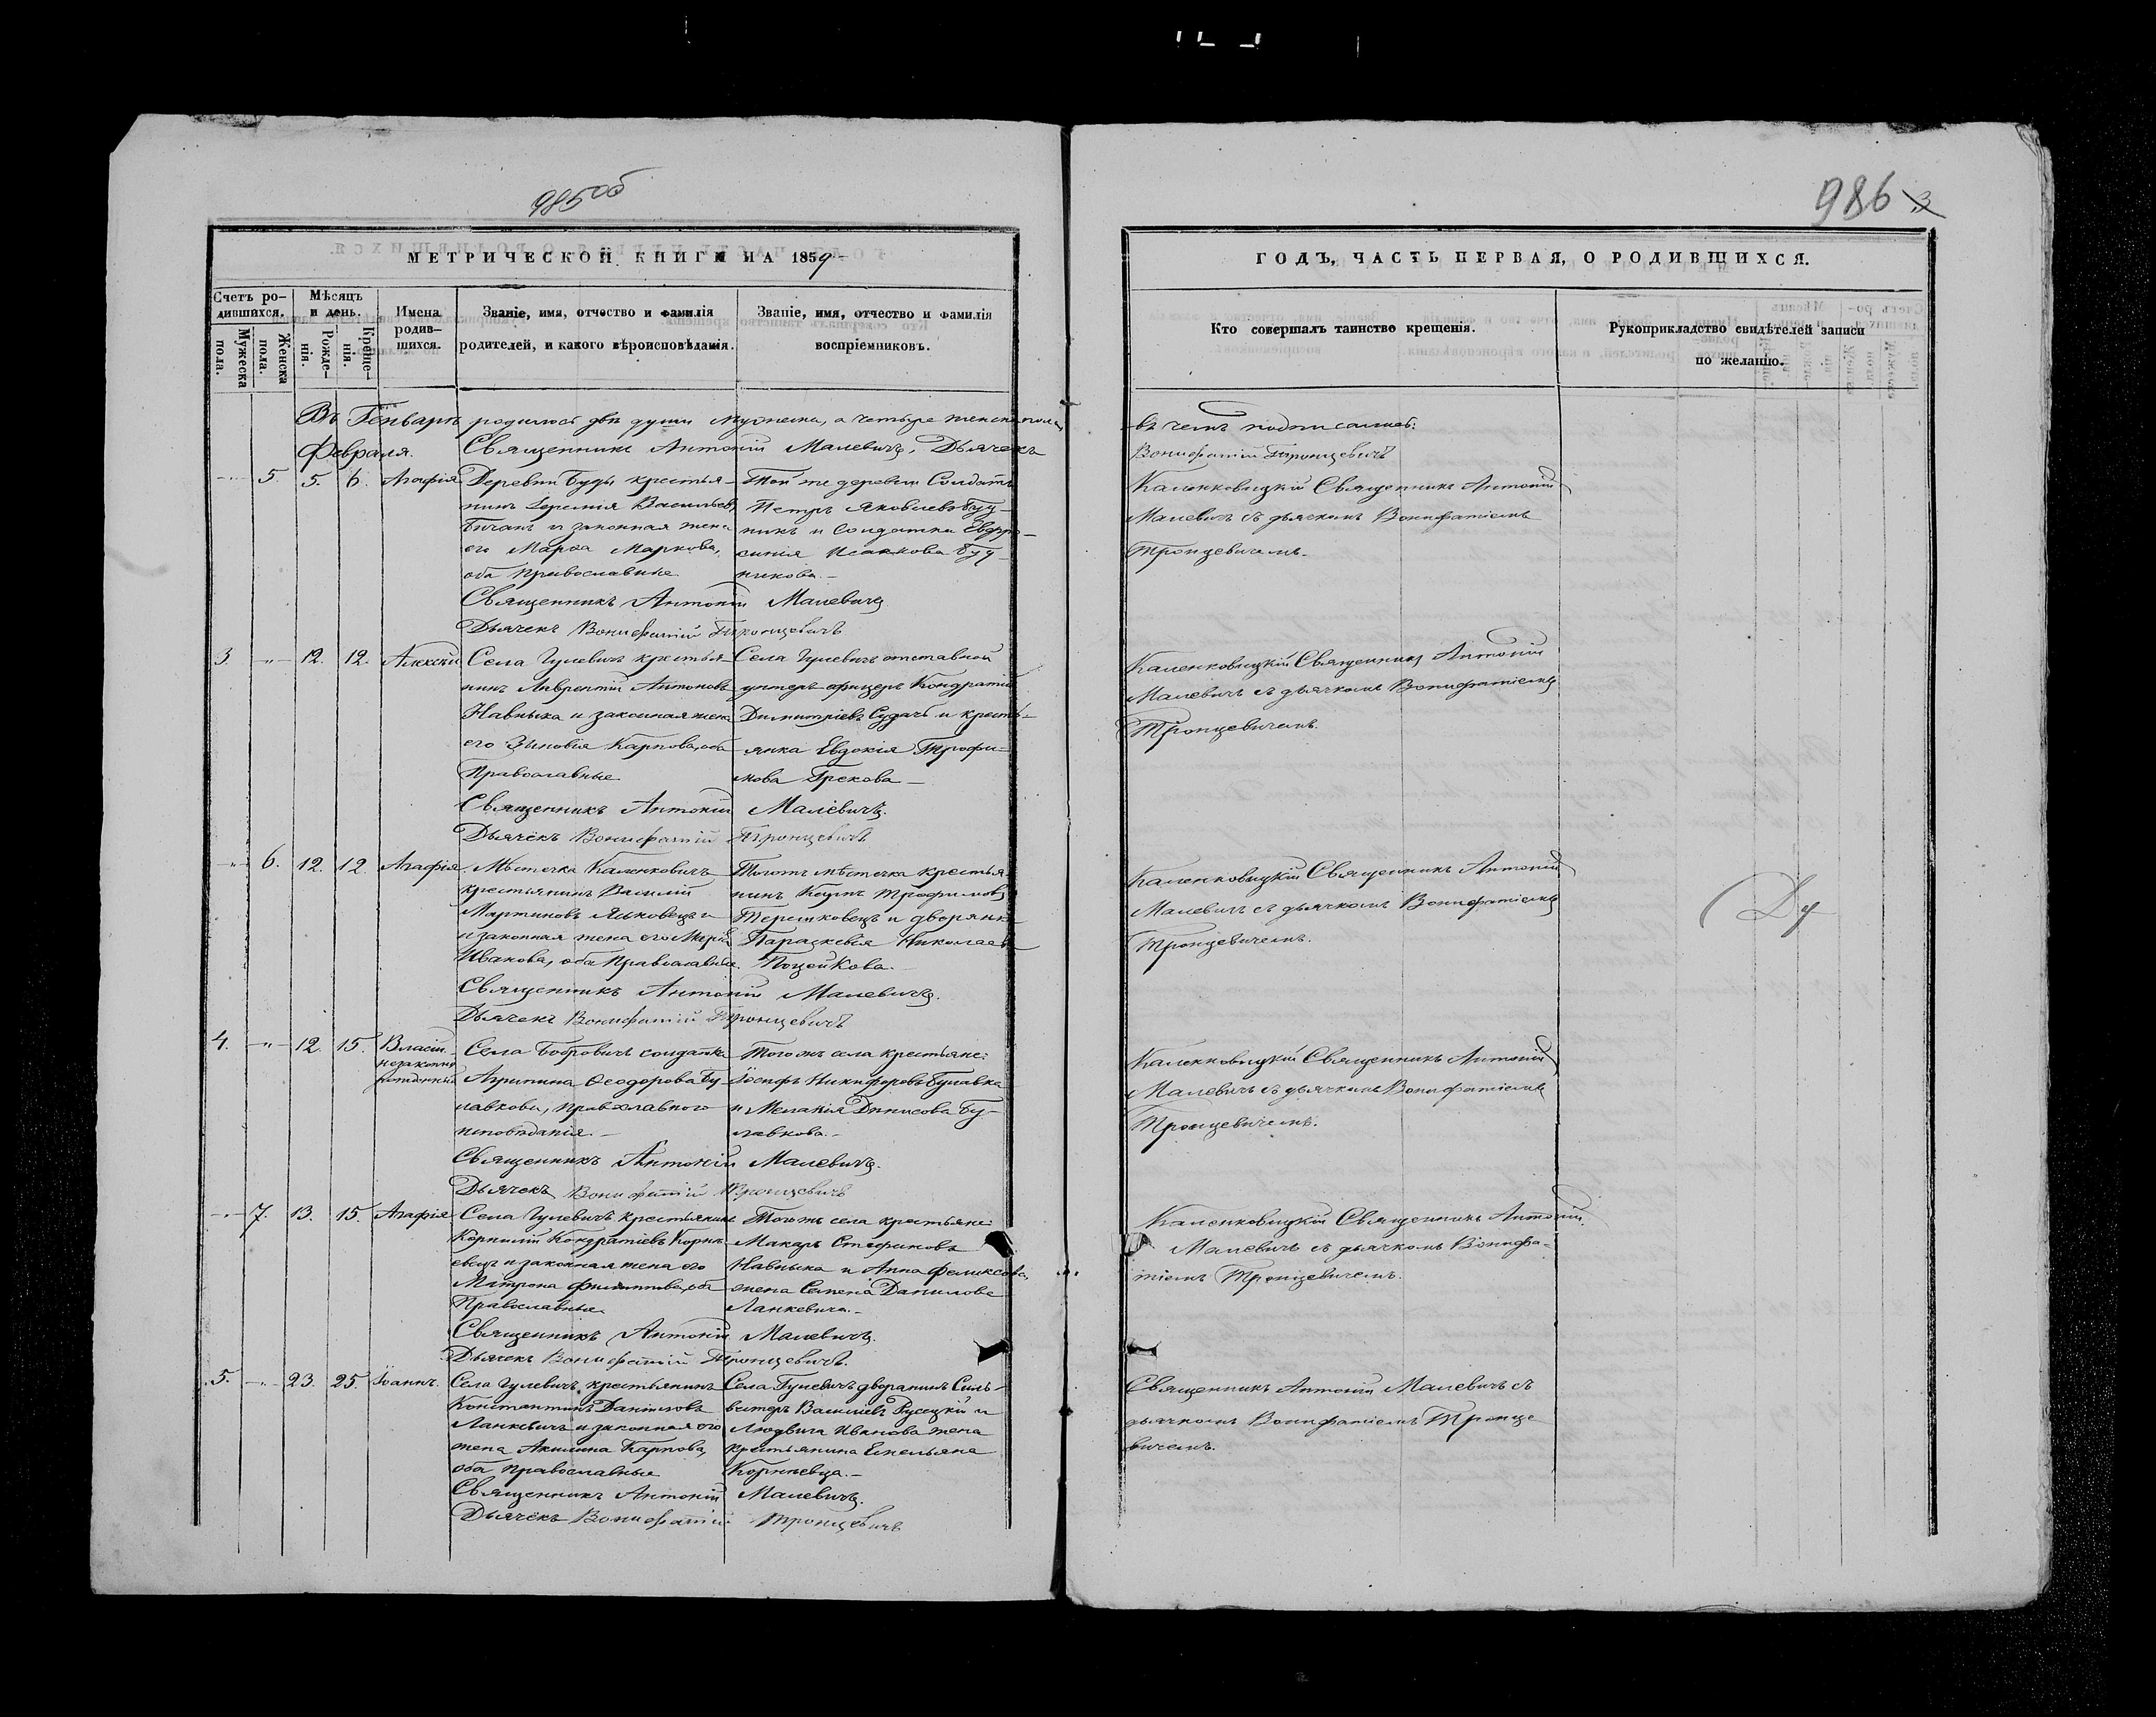 985об
МЕТРИЧЕСКОЙ КНИГИ НА 1859
Счетъ ро-
дившихся.
Мѣсяцъ
и день.
Имена
родив-
шихся.
Званіе, имя, отчество и фамилія
родителей, и какого вѣроисповѣданія.
Званіе, имя, отчество и фамилія
воспріемниковъ.
Мужеска
пола.
Женска
пола.
Рожде-
нія.
Креще-
нія.
Въ Генварѣ родилось двѣ души мужеска, а четыре женска пола,
Февраля. Священникъ Антоній Малевичъ, Дьячекъ
5. 5. 6. Агафія
Деревни Буды крестья-
нинъ Іеремія Васильевъ
и законная жена
его Марѳа Маркова,
оба Православные
Той же деревни Солдатъ
Петръ Яковлевъ Буд-
никъ и Солдатка Евфро-
синія Исаакова Буд-
никова.-
Священникъ Антоній Малевичъ
Дьячекъ Вонифатій Тронцевичъ
3. 12. 12. Алексій
Села Гулевичъ крестья-
нинъ Лаврентій Антоновъ
Навныка и законная жена
его Зиновія Карпова, оба
Православные
Села Гулевичъ отставной
унтеръ-офицеръ Кондратій
Димитріевъ Судачъ и кресть-
янка Евдокія Трофи-
мова Грекова-
Священникъ Антоній Малевичъ.
Дьячекъ Вонифатій Тронцевичъ
6. 12. 12. Агафія
Мѣстечка Каленковичъ
крестьянинъ Василій
Мартиновъ и
и законная жена его
Иванова, оба Православные.
Тогожъ мѣстечка крестья-
нинъ Трофимовъ
Терешковецъ и дворянка
Параскевія Николаева
Поцейкова.-
Священникъ Антоній Малевичъ.
Дьячекъ Вонифатій Тронцевичъ
4. 12. 15. Власій
незаконно
рожденный
Села Бобровичъ солдатка
Агрипина Ѳеодорова Бу-
лавкова, православного
исповѣданія.-
Тогожъ села крестьяне:
Іосифъ Никифоровъ Булавка
и Меланія Динисова Бу-
лавкова.-
Священникъ Антоній Малевичъ.
Дьячекъ Вонифатій Тронцевичъ
7. 13. 15. Агафія
Села Гулевичъ крестьянинъ
Корнилій Кондратіевъ Корни-
евецъ и законная жена его
Матрона Филиппова, оба
Православные
Тогожъ села крестьяне:
Макаръ Стефановъ
Навныка и Анна Феликсова,
жена Семена Данилова
Ланкевича.-
Священникъ Антоній Малевичъ.
Дьячекъ Вонифатій Тронцевичъ.
5. 23. 25. Іоаннъ.
Села Гулевичъ крестьянинъ
Константинъ Даниловъ
Ланкевичъ и законная его
жена Акилина Карпова,
оба православные
Села Гулевичъ дворянинъ Силь-
вестеръ Василіевъ Русецкій и
Людвига Иванова жена
крестьянина Емельяна
Корниевца.-
Священникъ Антоній Малевичъ.
Дьячекъ Вонифатій Тронцевичъ
986
3
ГОДЪ, ЧАСТЬ ПЕРВАЯ, О РОДИВШИХСЯ.
Кто совершалъ таинство крещенія.
Рукоприкладство свидѣтелей записи
по желанію.
въ чемъ подписались:
Вонифатій Тронцевичъ
Каленковицкій Священникъ Антоній
Малевичъ съ дьячкомъ Вонифатіемъ
Тронцевичемъ.
Каленковицкій Священникъ Антоній
Малевичъ съ дьячкомъ Вонифатіемъ
Тронцевичемъ.
Каленковицкій Священникъ Антоній
Малевичъ съ дьячкомъ Вонифатіемъ
Тронцевичемъ.
Каленковицкій Священникъ Антоній
Малевичъ съ дьячкомъ Вонифатіемъ
Тронцевичемъ.
Каленковицкій Священникъ Антоній
Малевичъ съ дьячкомъ Вонифа-
тіемъ Тронцевичемъ.
Священникъ Антоній Малевичъ съ
дьячкомъ Вонифатіемъ Тронце-
вичемъ.